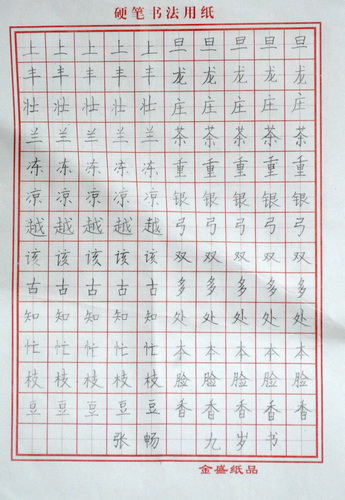 硬笔书法用纸
上上上上上旦旦旦旦旦
丰丰丰丰丰龙龙龙龙龙
壮壮壮壮壮庄庄庄庄庄
兰兰兰兰兰茶茶茶茶茶
冻冻冻冻冻重重重重重
凉凉凉凉凉银银银银银
越越越越越弓弓弓弓弓
该该该该该双双双双双
古古古古古多多多多多
知知知知知处处处处处
忙忙忙忙忙本本本本本
枝枝枝枝枝脸脸脸脸脸
豆豆豆豆豆香香香香香
张畅九岁书
金盛纸品